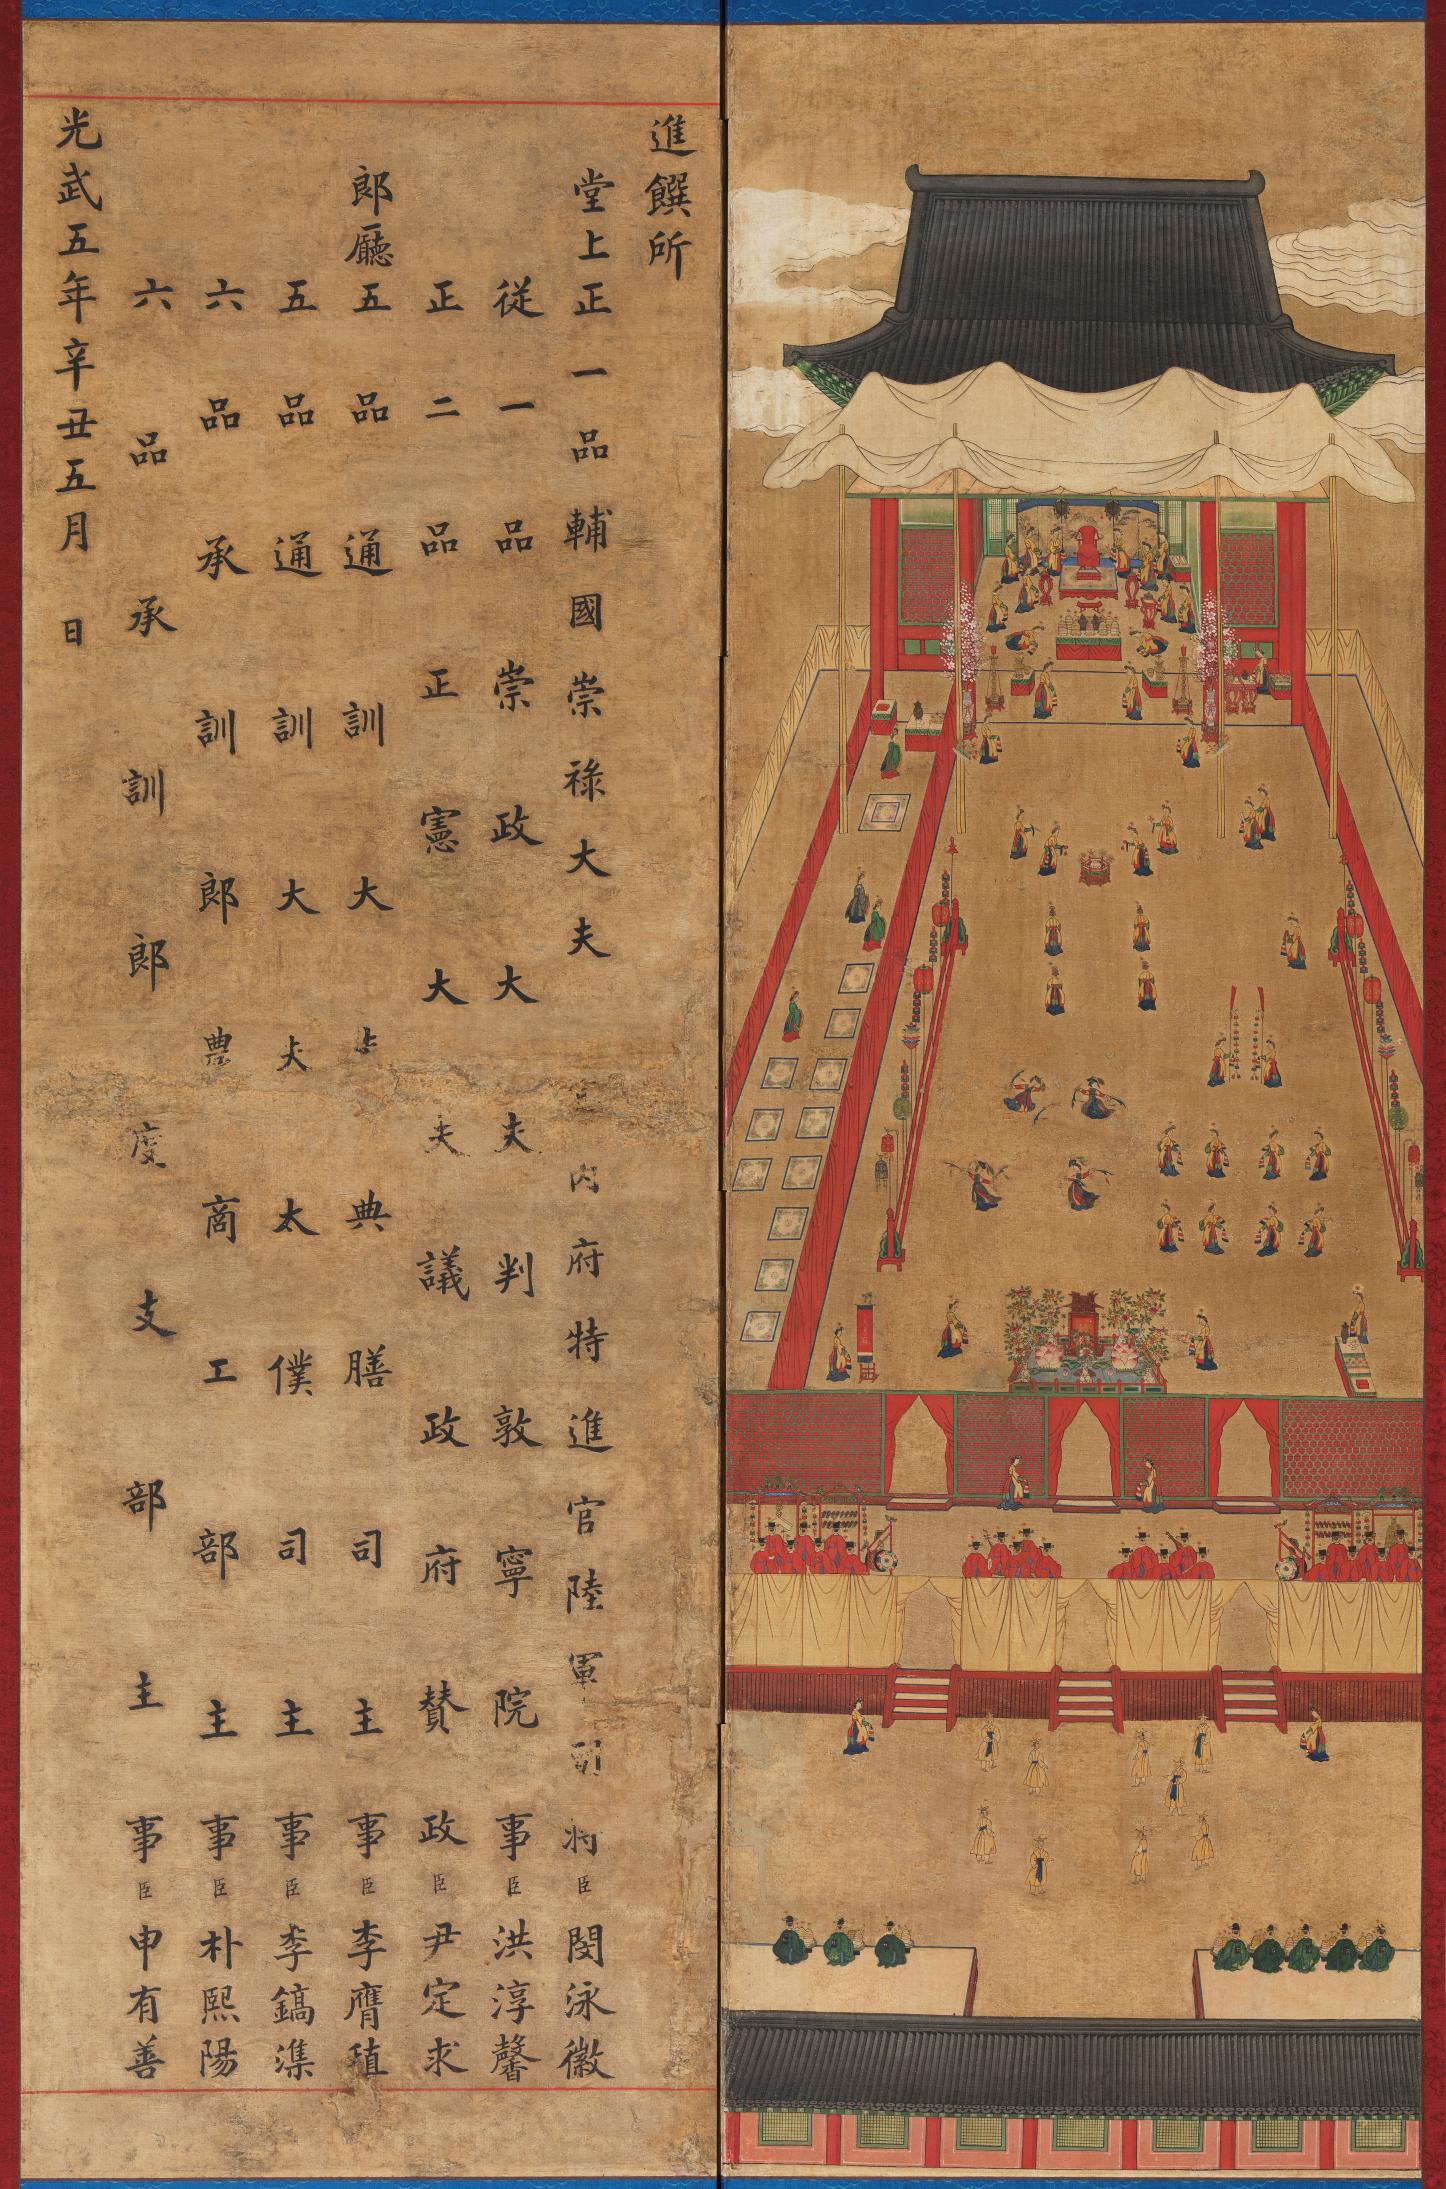 進饌所
堂上正一品輔國崇祿大夫 內府特進官陸軍副將臣閔泳徽
從一品崇政大夫判敦寧院事臣洪淳馨
正二品正憲大夫議政府贊政臣尹定求
郎廳五品通訓大夫典膳司主事臣李膺稙
五品通訓大夫太僕司主事臣李鎬準
六品承訓郎農商工部主事臣朴熙陽
六品承訓郎度支部主事臣申有善
光武五年辛丑五月 日